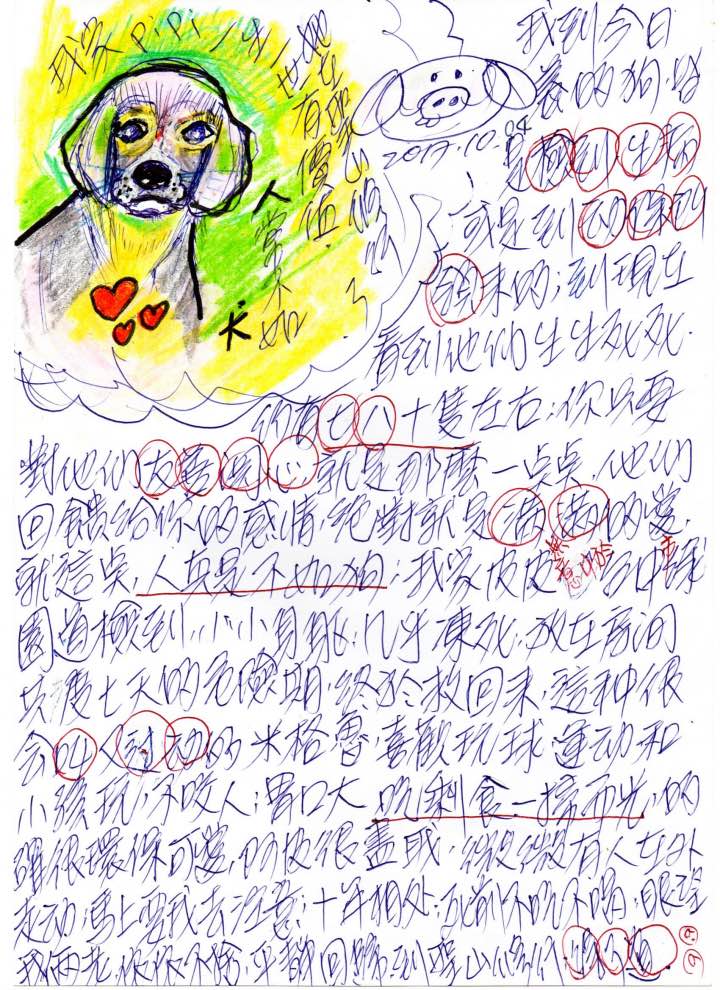 我家pipi一生一世
有價值.
人當不如
犬.
2017.10.04
我到今日
養的狗.皆
是檢到生病
或是到
來的;到現在
看到他們生生死死.
約有七八十隻左右;你只要
對他們友善関心就是那麼一点点.他們
回饋給你的感情.絕對就是滿滿的愛.
就這点.人真是不如狗;我家皮皮
無意中於
園道檢到小小身軀.几乎凍死.放在房间
共度七天的危險期.終於救回來.這种很
会叫人过动的米格魯.喜歡玩球.運动和
小孩玩.不咬人;胃口大.吃剩食一掃而光.的
確很環保可愛.皮很盡职.微微有人在外
走动.馬上要我去注意;十年相处;死前不吃不喝;眼望
我両老.依依不捨.平靜回歸到聖山修行.